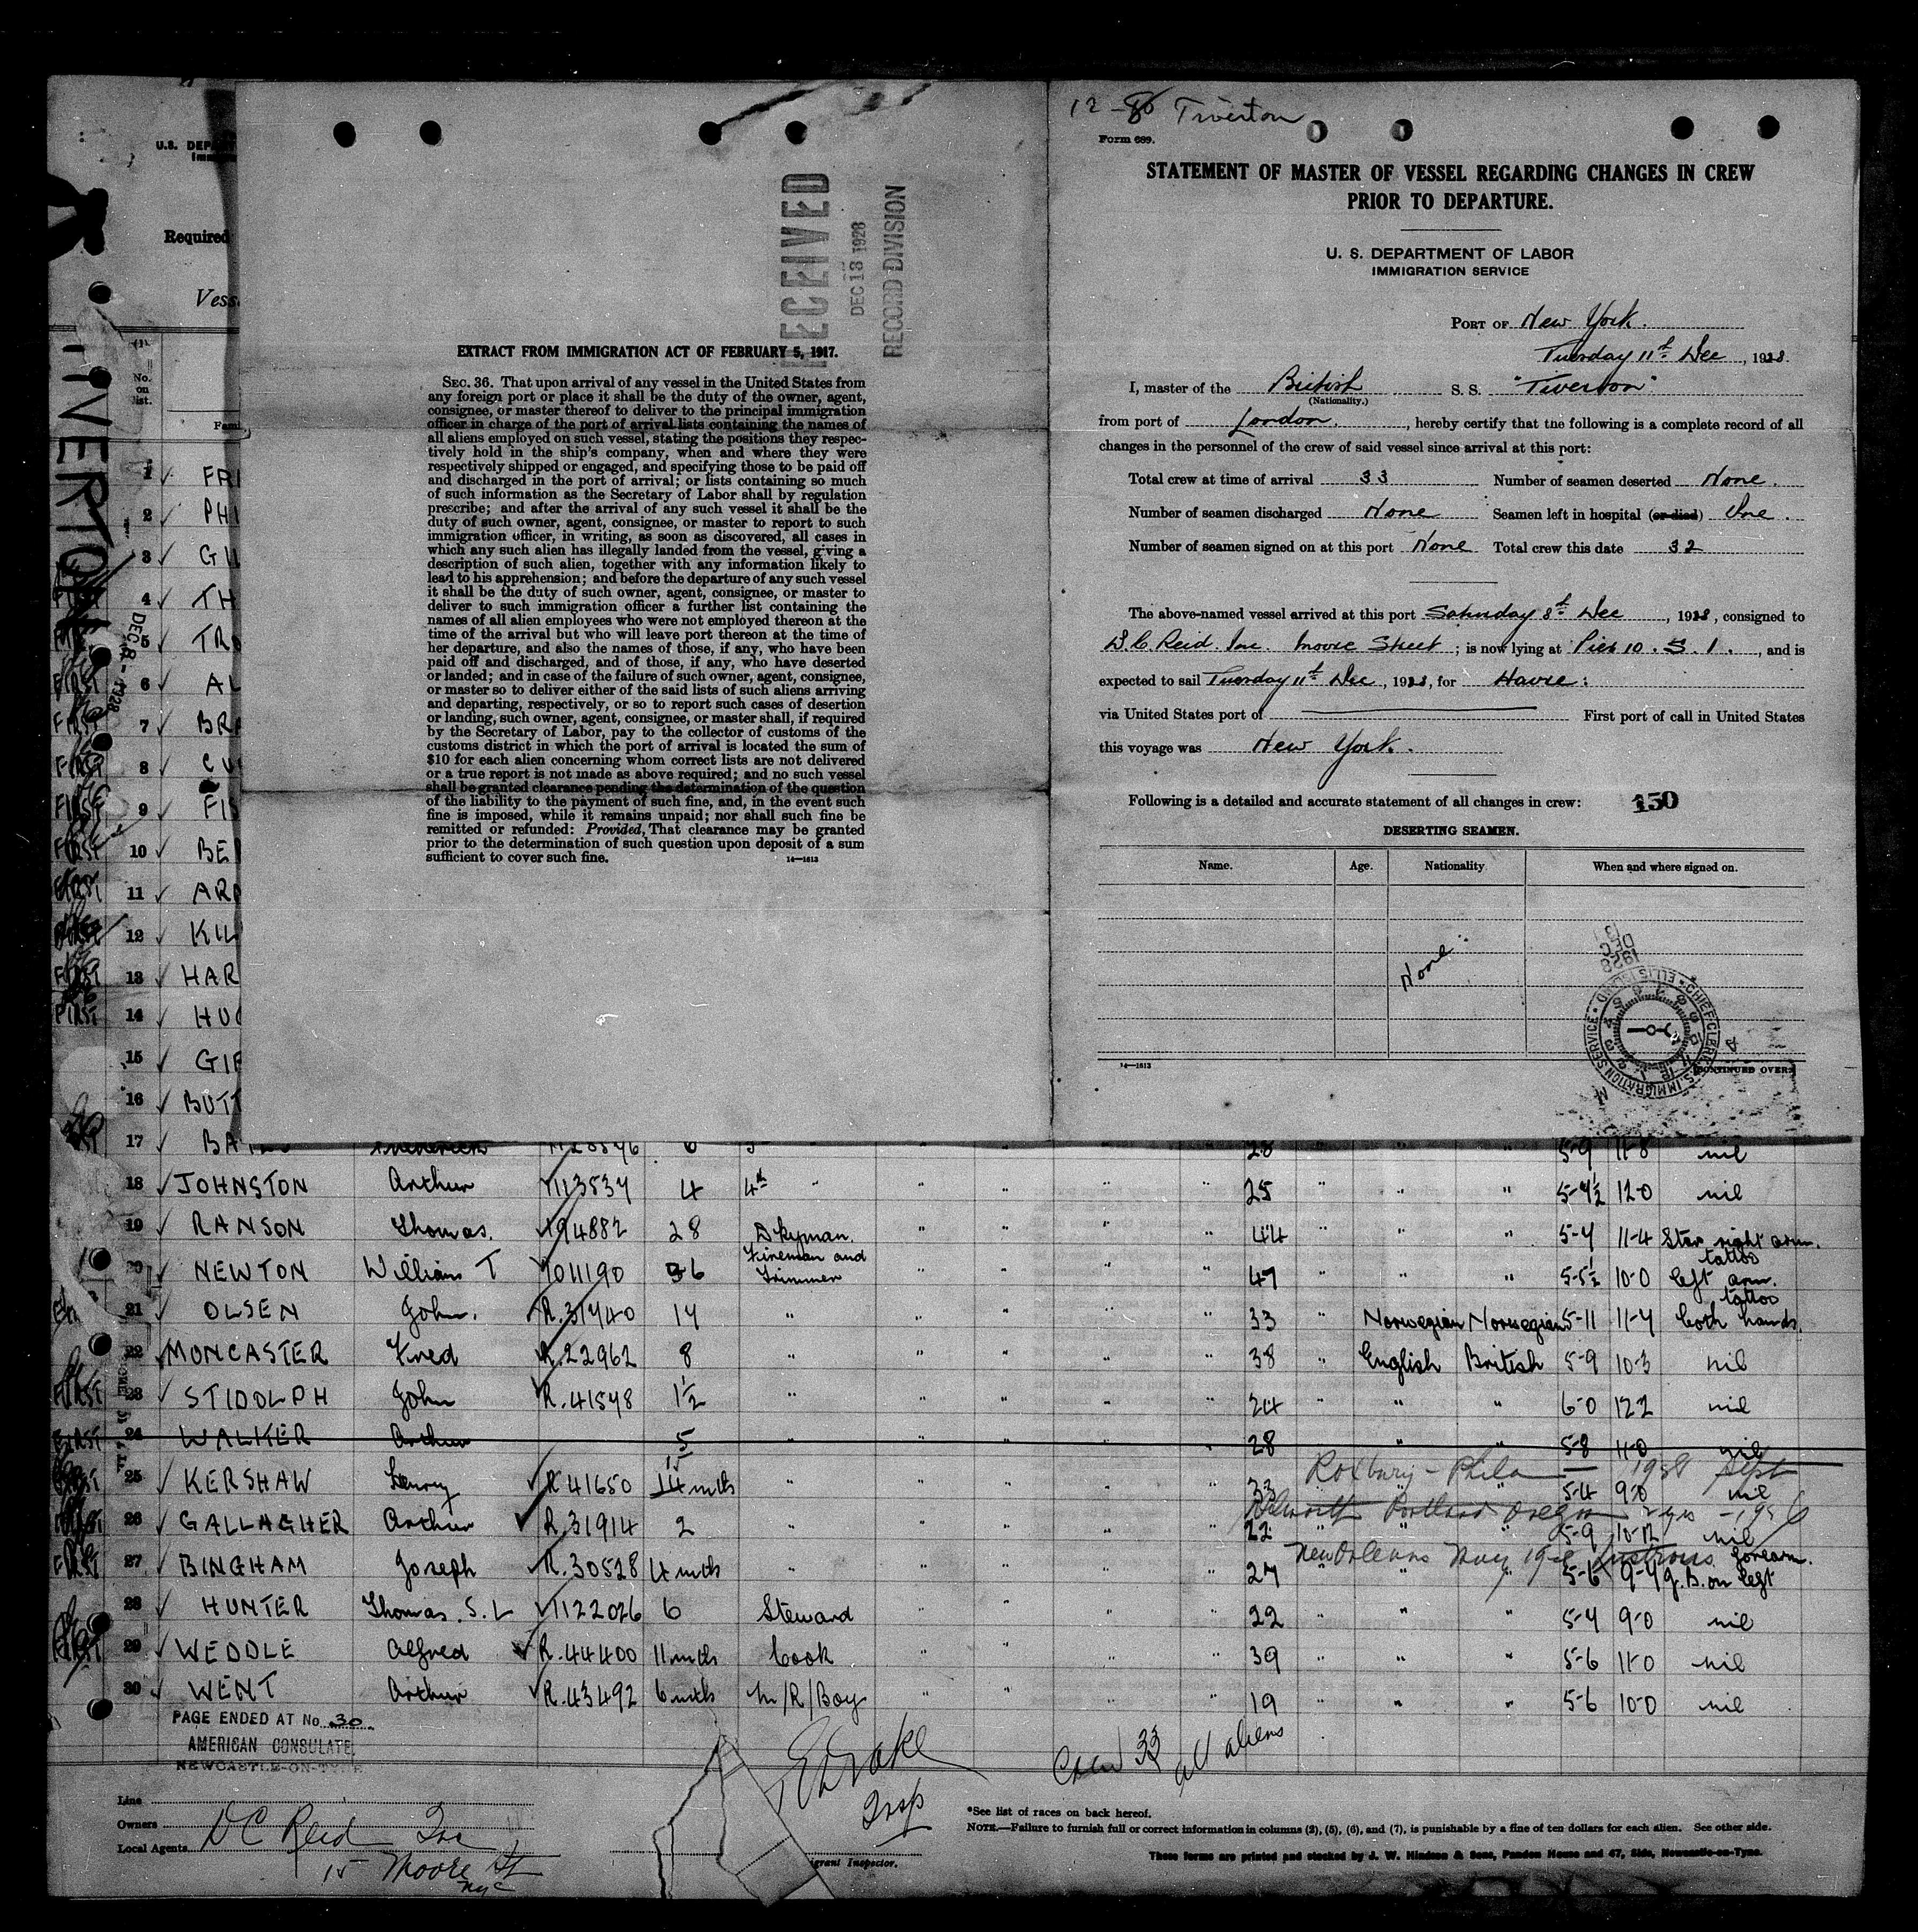 U.S. DEPA
Required
Vess
No. on list.
Fami
TIVERTON
DEC 8 - 1928
1 ✓ FRI
2 ✓ PHI
3 ✓ GIL
4 ✓ TH
5 ✓ TRO
6 ✓ AL
7 ✓ BRA
8 ✓ CU
9 ✓ FIS
10 ✓ BE
11 ✓ ARA
12 ✓ KIL
13 ✓ HAR
14 ✓ HUG
15 ✓ GIF
16 ✓ BUTT
RECEIVED
DEC 13 1928
RECORD DIVISION
EXTRACT FROM IMMIGRATION ACT OF FEBRUARY 5, 1917.
SEC. 36. That upon arrival of any vessel in the United States from
any foreign port or place it shall be the duty of the owner, agent,
consignee, or master thereof to deliver to the principal immigration
officer in charge of the port of arrival lists containing the names of
all aliens employed on such vessel, stating the positions they respec-
tively hold in the ship's company, when and where they were
respectively shipped or engaged, and specifying those to be paid off
and discharged in the port of arrival; or lists containing so much
of such information as the Secretary of Labor shall by regulation
prescribe; and after the arrival of any such vessel it shall be the
duty of such owner, agent, consignee, or master to report to such
immigration officer, in writing, as soon as discovered, all cases in
which any such alien has illegally landed from the vessel, giving a
description of such alien, together with any information likely to
lead to his apprehension; and before the departure of any such vessel
it shall be the duty of such owner, agent, consignee, or master to
deliver to such immigration officer a further list containing the
names of all alien employees who were not employed thereon at the
time of the arrival but who will leave port thereon at the time of
her departure, and also the names of those, if any, who have been
paid off and discharged, and of those, if any, who have deserted
or landed; and in case of the failure of such owner, agent, consignee,
or master so to deliver either of the said lists of such aliens arriving
and departing, respectively, or so to report such cases of desertion
or landing, such owner, agent, consignee, or master shall, if required
by the Secretary of Labor, pay to the collector of customs of the
customs district in which the port of arrival is located the sum of
$10 for each alien concerning whom correct lists are not delivered
or a true report is not made as above required; and no such vessel
shall be granted clearance pending the determination of the question
of the liability to the payment of such fine, and, in the event such
fine is imposed, while it remains unpaid; nor shall such fine be
remitted or refunded: Provided, That clearance may be granted
prior to the determination of such question upon deposit of a sum
sufficient to cover such fine. 14—1613
12-8 Tiverton
Form 689.
STATEMENT OF MASTER OF VESSEL REGARDING CHANGES IN CREW
PRIOR TO DEPARTURE.
U. S. DEPARTMENT OF LABOR
IMMIGRATION SERVICE
PORT OF New York.
Tuesday 11th Dec, 1928.
I, master of the British S. S. "Tiverton"
(Nationality.)
from port of London., hereby certify that the following is a complete record of all
changes in the personnel of the crew of said vessel since arrival at this port:
Total crew at time of arrival 33 Number of seamen deserted None.
Number of seamen discharged None Seamen left in hospital (or died) One.
Number of seamen signed on at this port None Total crew this date 32
The above-named vessel arrived at this port Saturday 8th Dec, 1928, consigned to
D.C. Reid. Inc. Moore Street; is now lying at Pier 10. S. I., and is
expected to sail Tuesday 11th Dec, 1928, for Havre:
via United States port of First port of call in United States
this voyage was New York.
Following is a detailed and accurate statement of all changes in crew: 150
DESERTING SEAMEN.
Name. Age. Nationality When and where signed on.
None.
1928 DEC
CHIEF CLERK U.S. IMMIGRATION SERVICE • ELLIS ISLAND
14—1613
(CONTINUED OVER)
17 ✓ BA Frederick 6 28 " 5-9 11-8 nil
18 ✓ JOHNSTON Arthur 1113537 4 4th " " " " " 25 " " " 5-7½ 12-0 nil
19 ✓ RANSON Thomas. 794882 28 Dkyman. " " " " 44 " " " 5-7 11-4 Star right arm.
20 ✓ NEWTON William T 701190 36 Fireman and Trimmer " " " " 47 " " " 5-5½ 10-0 tattoo left arm.
21 ✓ OLSEN John. R.31740 17 " " " " " 33 " Norwegian Norwegian 5-11 11-7 tattoo both hands.
22 ✓ MONCASTER Fred R.22962 8 " " " " " 38 " English British 5-9 10-3 nil
23 ✓ STIDOLPH John R.41548 1½ " " " " " 24 " " " 6-0 12-2 nil
24 WALKER Arthur 5 " " " " " 28 " " " 5-8 11-0 nil
Roxbury - Phila Sept
25 ✓ KERSHAW Henry R 41650 14 mths " " " " " 33 5-4 9-0 nil
Portland Oregon 2 yrs - 1926
26 ✓ GALLAGHER Arthur R.31914 2 " " " " " 22 " " " 5-9 10-12 nil
New Orleans
27 ✓ BINGHAM Joseph R.30528 4 mths " " " " " 27 5-6 9-7 J.B. on left forearm.
28 ✓ HUNTER Thomas. S. L 1122026 6 Steward " " " " 22 " " " 5-7 9-0 nil
29 ✓ WEDDLE Alfred R.44400 11 mths Cook " " " " 39 " " " 5-6 11-0 nil
30 ✓ WENT Arthur R.43492 6 mths M/R/Boy " " " " 19 " " " 5-6 10-0 nil
PAGE ENDED AT No 30
AMERICAN CONSULATE,
NEWCASTLE-ON-TYNE
E Drake
Insp
Crew 33 all aliens
Line
Owners
Local Agents D C Reid Inc
15 Moore St
NYC
Immigrant Inspector.
*See list of races on back hereof.
NOTE.—Failure to furnish full or correct information in columns (2), (5), (6), and (7), is punishable by a fine of ten dollars for each alien. See other side.
These forms are printed and stocked by J. W. Hindson & Sons, Pandon House and 67, Side, Newcastle-on-Tyne.